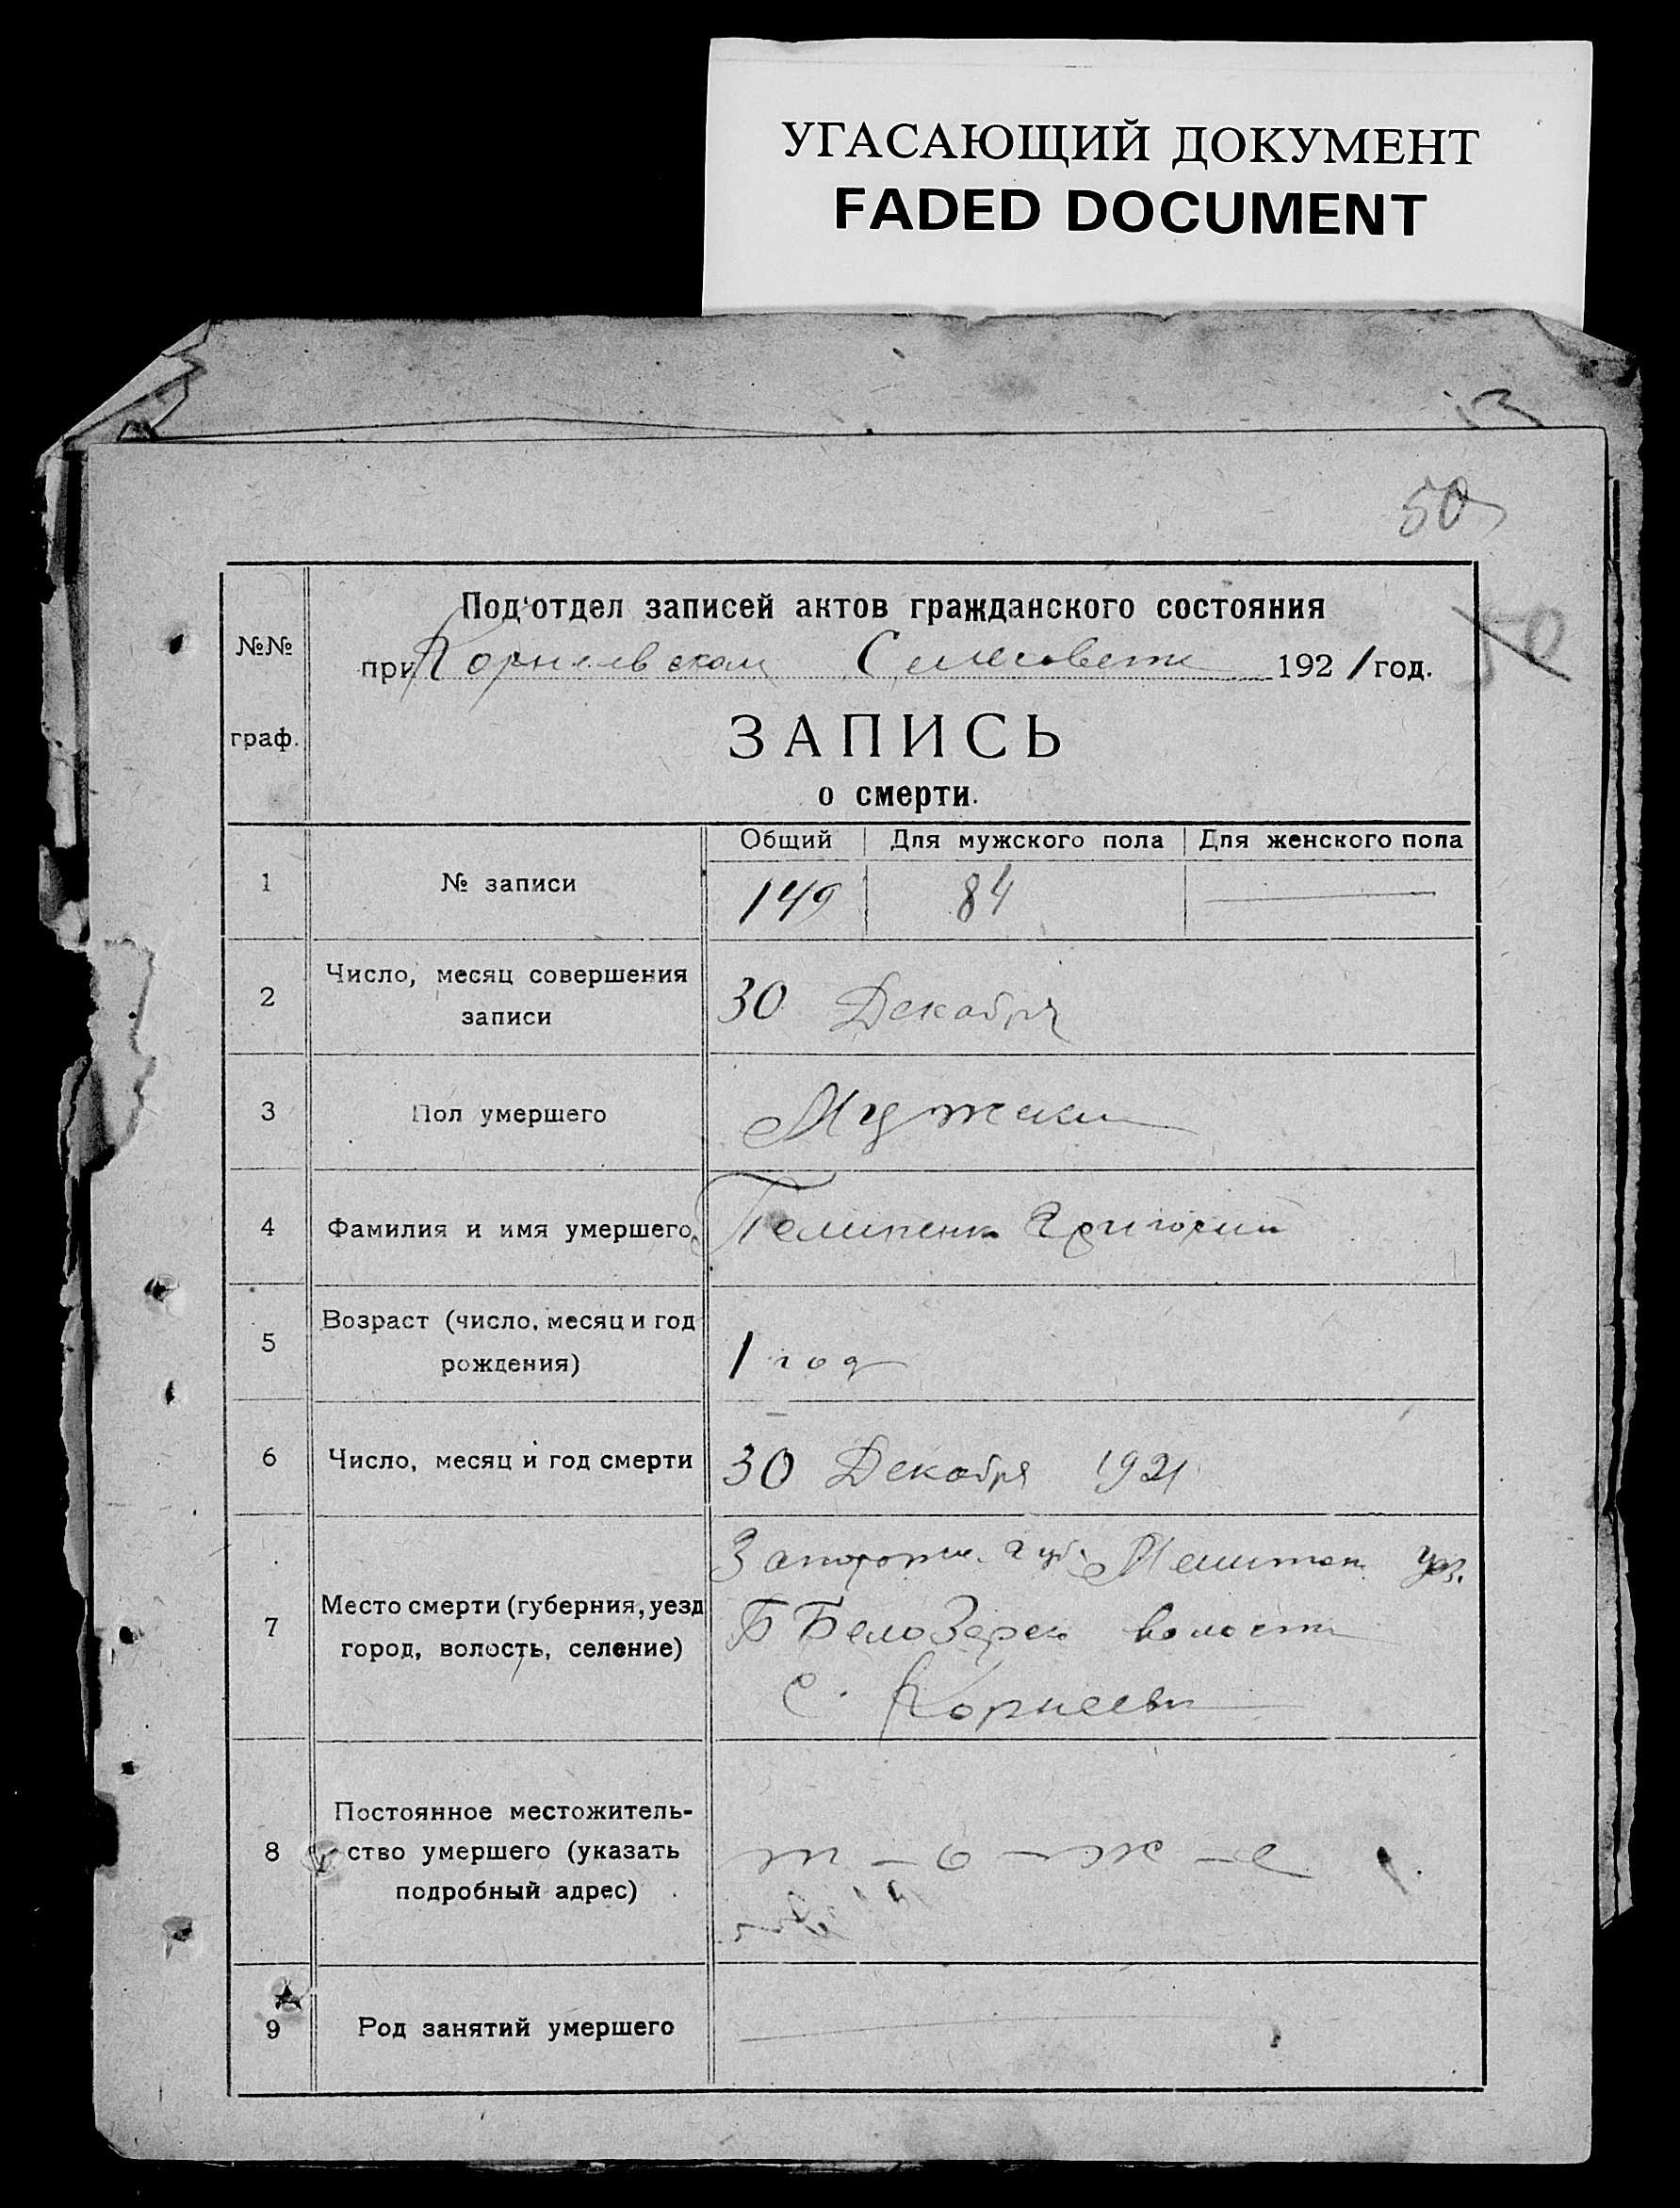 УГАСАЮЩИЙ ДОКУМЕНТ
FADED DOCUMENT
50
50
№№
граф.
Под'отдел записей актов гражданского состояния
при Корнеевском Сельсовете 1921 год.
ЗАПИСЬ
о смерти.
Общий Для мужского пола Для женского пола
1 № записи 149 84 —
2 Число, месяц совершения
записи
30 Декабря
3 Пол умершего Мужски
4 Фамилия и имя умершего Григорий
5 Возраст (число, месяц и год
рождения)
1 год
6 Число, месяц и год смерти 30 Декабря 1921
7 Место смерти (губерния, уезд
город, волость, селение)
Запорож. губ. Мелитоп уез.
Б Белозерск волости
с. Корнеевк
8 Постоянное местожитель-
ство умершего (указать
подробный адрес)
т – о – ж – е
9 Род занятий умершего —